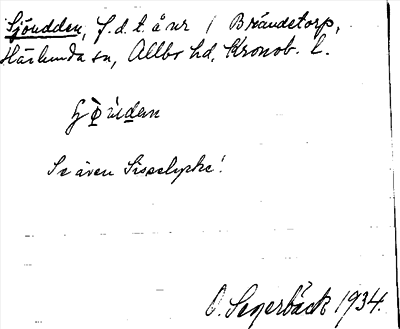 Sjöudden, f.d. t. å nr 1 Brändetorp,
Härlunda sn, Allbo hd, Kronob. l.
Se även Sisselycke!
O. Segerbäck 1934.